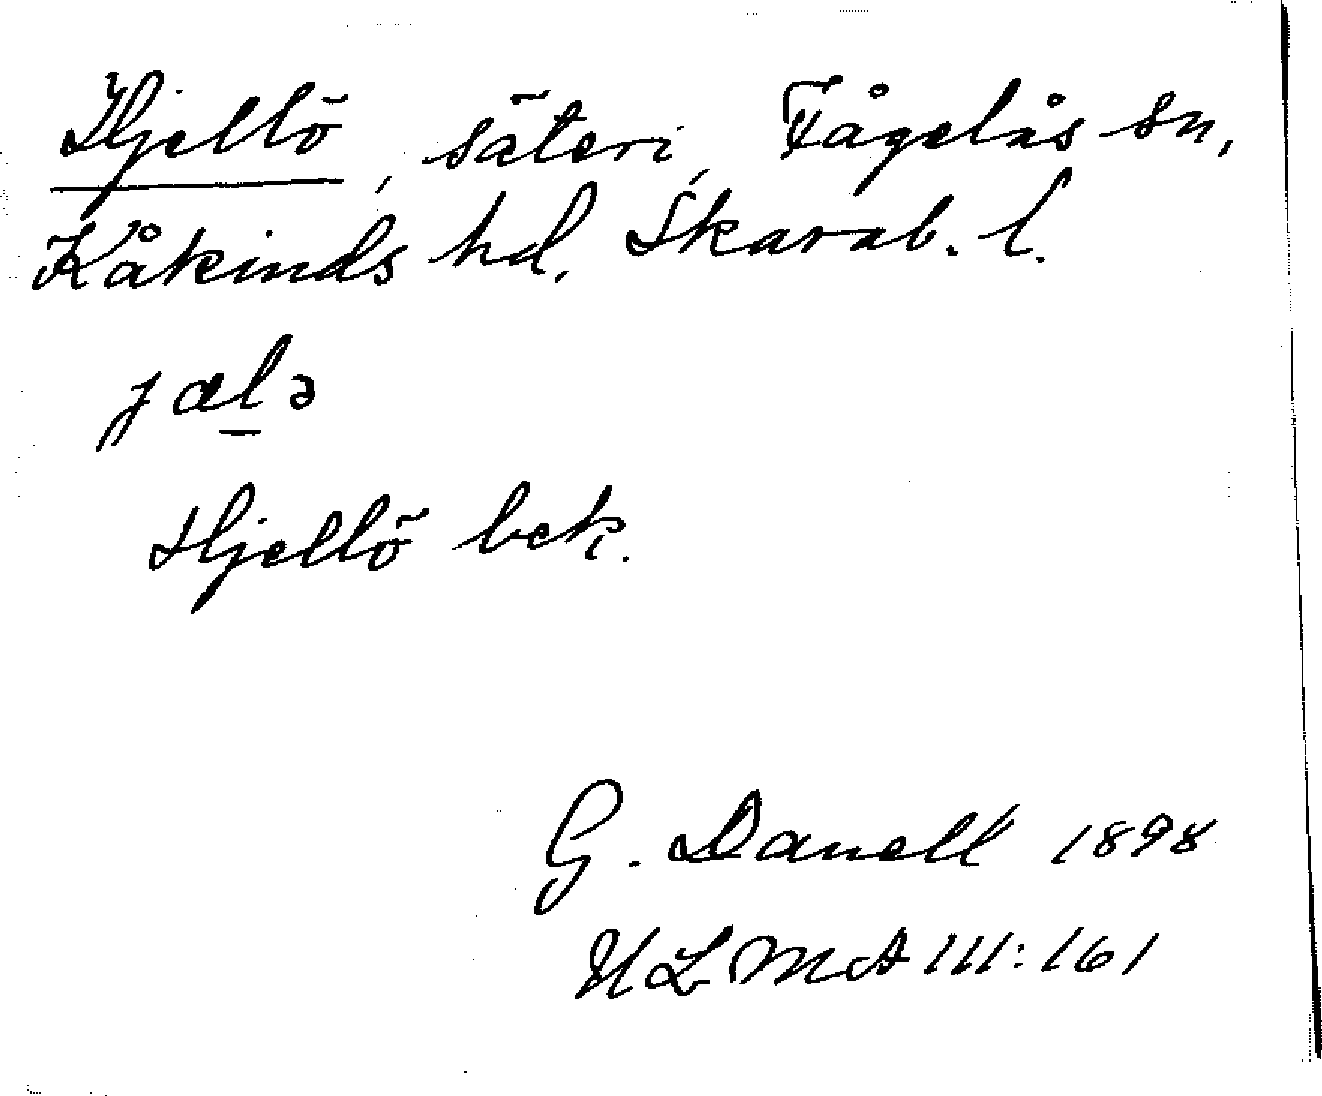 Hjellö, säteri, Fågelås sn,
Kåkinds hd, Skarab. l.
jælə
Hjellö bek.
G. Danell 1898
ULMA 111:161